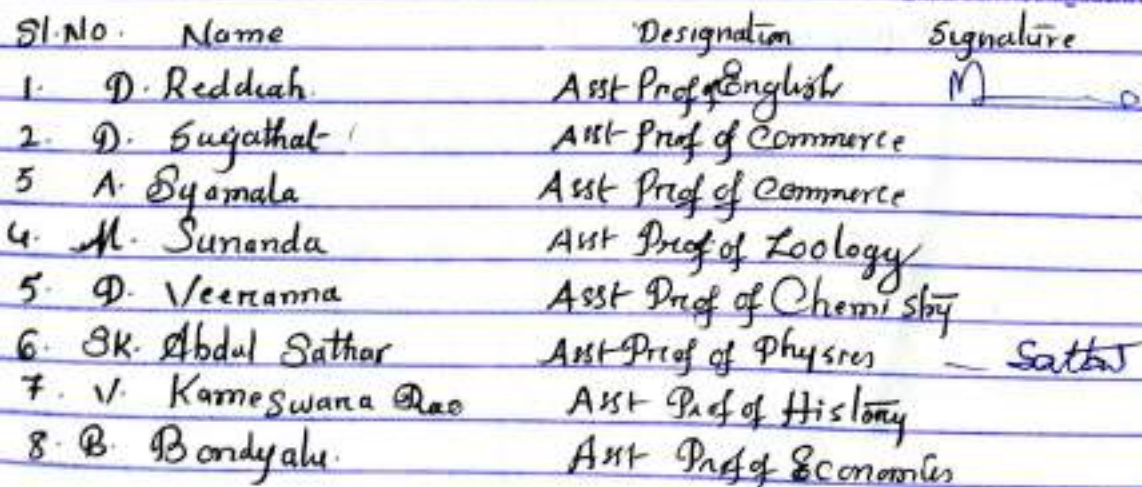 Sl.No. Name Designation Signature
1. D. Reddiah. Asst Prof of English
2. D. Sugathat Asst Prof of Commerce
5 A. Syamala Asst Prof of Commerce
4. M. Sunanda Asst Prof of Zoology
5. D. Veeranna Asst Prof of Chemistry
6. SK. Abdul Sathar Asst Prof of Physics – Sattar
7. V. Kameswara Rao Asst Prof of History
8. B. Bondyalu. Asst Prof of Economics